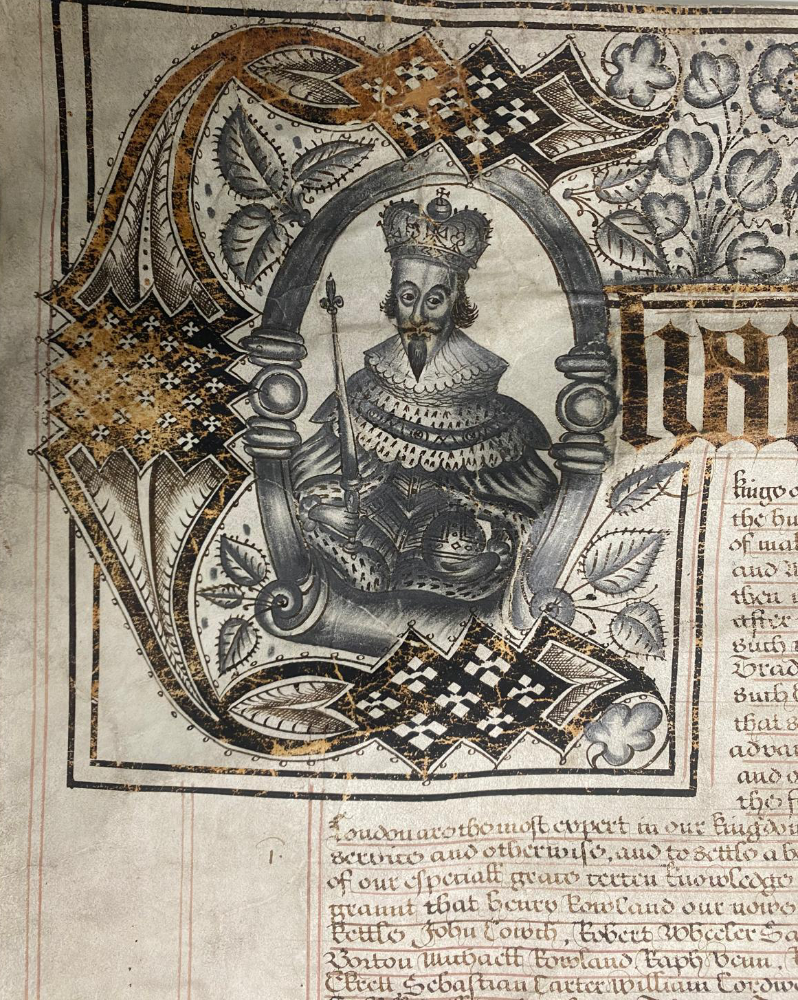 Char
kings o
the bu
of mak
and
then
after
such t
Brad
such
that s
advan
and o
the f
London are the most expert in our kingdom
1.
service and otherwise, and to settle a b
of our especiall grace certen knowledge
graunt that henry Rowland our nowe
kettle John Cowth, Robert Wheeler Sa
Borton Michaell Rowland Raph Venn,
Ekrell Sebastian Carter William Cordw